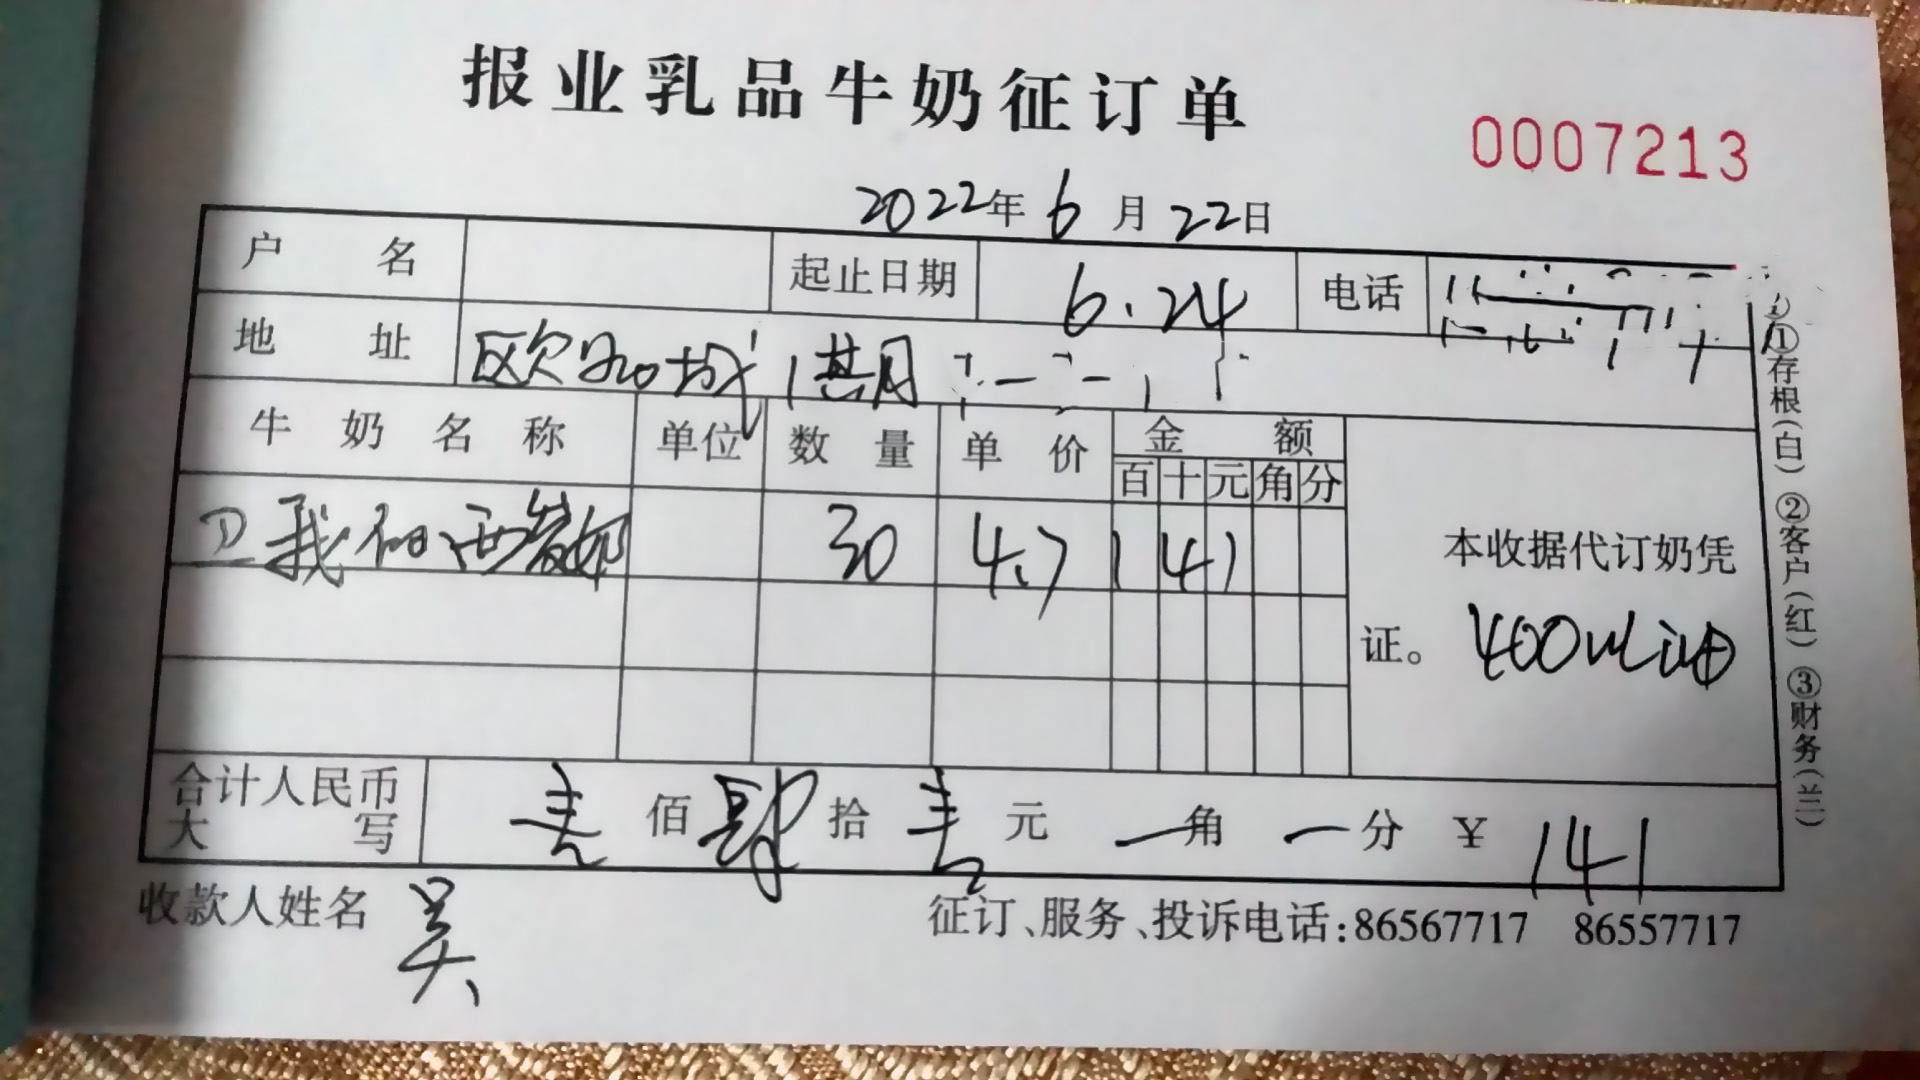 报业乳品牛奶征订单
0007213
2022年6月22日
户名 起止日期 6.24 电话
地址 欧 城1期
牛奶名称 单位 数量 单价 金额
百十元角分
30 4.7 141
本收据代订奶凭
证。 400ml
合计人民币
大写 壹佰肆拾壹元一角一分 ¥141
收款人姓名 吴
征订、服务、投诉电话:86567717 86557717
①存根(白) ②客户(红) ③财务(兰)